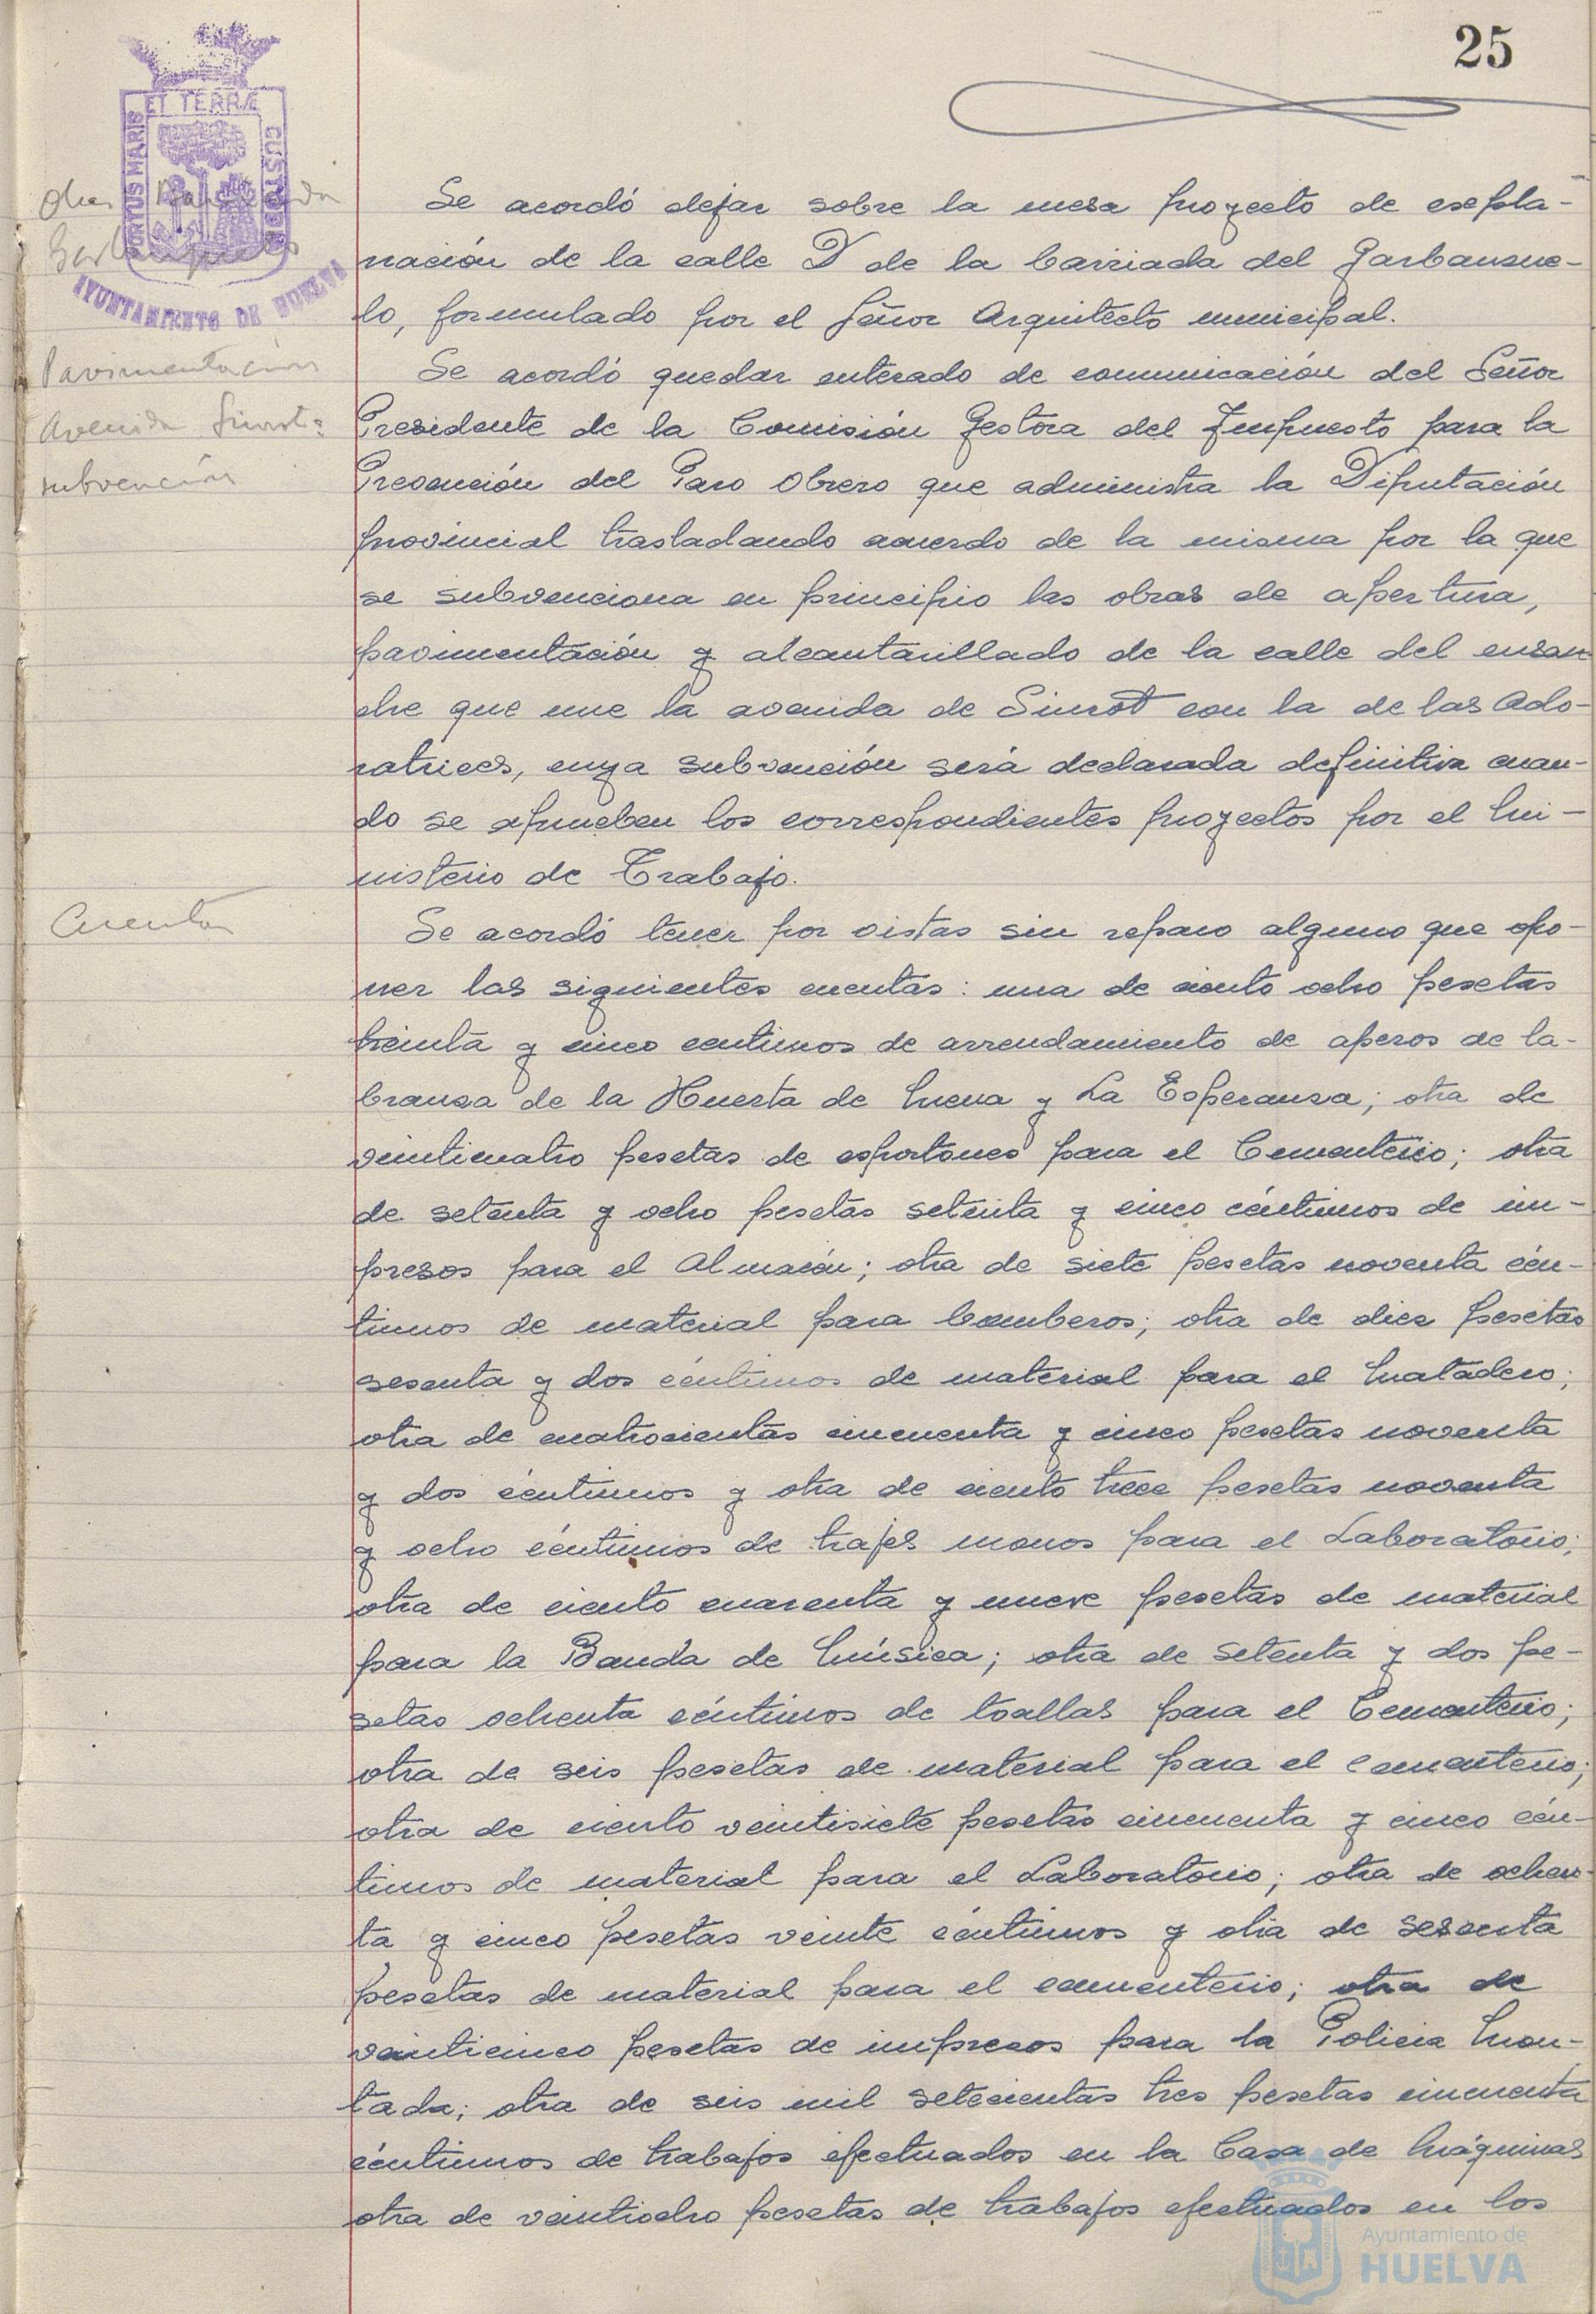 25
PORTUS MARIS ET TERRÆ CUSTODIA
AYUNTAMIENTO DE HUELVA
Obras Barriada
Se acordó dejar sobre la mesa proyecto de expla-
nación de la calle D de la barriada del Garbanzue-
lo, formulado por el Señor Arquitecto municipal.
Pavimentación
Avenida Simrot:
subvención
Se acordó quedar enterado de comunicación del Señor
Presidente de la Comisión Gestora del Impuesto para la
Prevención del Paro Obrero que administra la Diputación
provincial trasladando acuerdo de la misma por la que
se subvenciona en principio las obras de apertura,
pavimentación y alcantarillado de la calle del ensan
che que une la avenida de Simrot con la de las Ado-
ratrices, cuya subvención será declarada definitiva cuan-
do se aprueben los correspondientes proyectos por el Mi-
nisterio de Trabajo.
Cuentas
Se acordó tener por vistas sin reparo alguno que opo-
ner las siguientes cuentas: una de ciento ocho pesetas
treinta y cinco centimos de arrendamiento de aperos de la-
branza de la Huerta de Mena y La Esperanza; otra de
veinticuatro pesetas de esportones para el Cementerio; otra
de setenta y ocho pesetas setenta y cinco céntimos de im-
presos para el Almacén; otra de siete pesetas noventa cén-
timos de material para bomberos; otra de diez pesetas
sesenta y dos céntimos de material para el Matadero;
otra de cuatrocientas cincuenta y cinco pesetas noventa
y dos céntimos y otra de ciento trece pesetas noventa
y ocho céntimos de trajes monos para el Laboratorio;
otra de ciento cuarenta y nueve pesetas de material
para la Banda de Música; otra de setenta y dos pe-
setas ochenta céntimos de toallas para el Cementerio;
otra de seis pesetas de material para el cementerio;
otra de ciento veintisiete pesetas cincuenta y cinco cén-
timos de material para el Laboratorio; otra de ochen-
ta y cinco pesetas veinte céntimos y otra de sesenta
pesetas de material para el cementerio; otra de
veinticinco pesetas de impresos para la Policia Mon-
tada; otra de seis mil setecientas tres pesetas cincuenta
céntimos de trabajos efectuados en la Casa de Máquinas
otra de veintiocho pesetas de trabajos efectuados en los
Ayuntamiento de
HUELVA